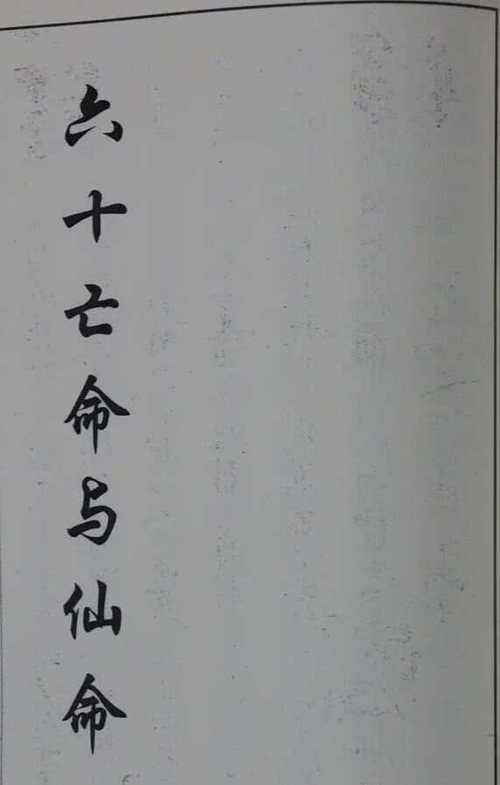 六十亡命与仙命